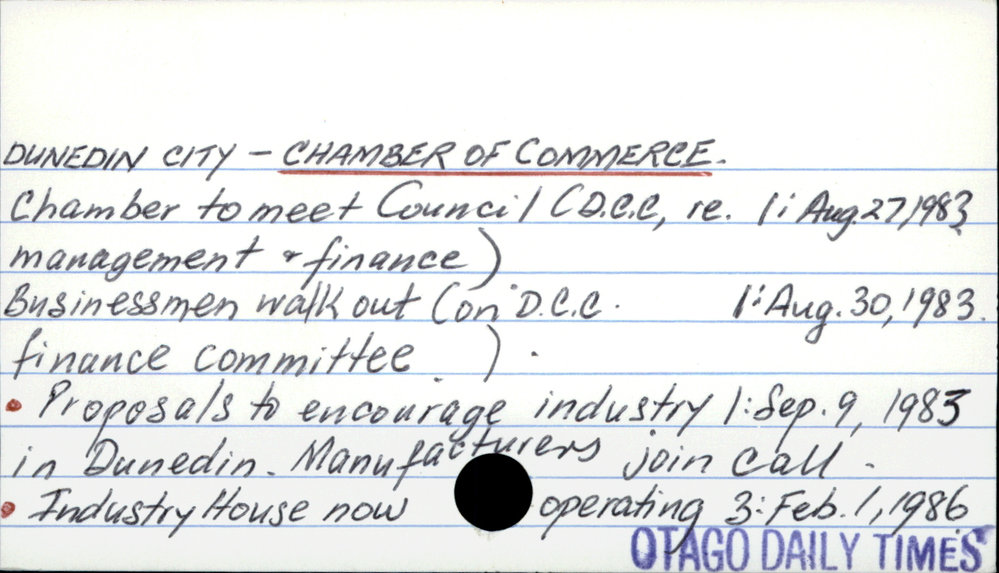 DUNEDIN CITY - CHAMBER OF COMMERCE.
Chamber to meet Council (D.C.C, re. 1: Aug.27,1983
management & finance)
Businessmen walk out (on D.C.C. 1: Aug. 30, 1983.
finance committee ).
• Proposals to encourage industry 1: Sep. 9, 1983
in Dunedin. Manufacturers join call.
• Industry House now operating 3: Feb. 1, 1986
OTAGO DAILY TIMES